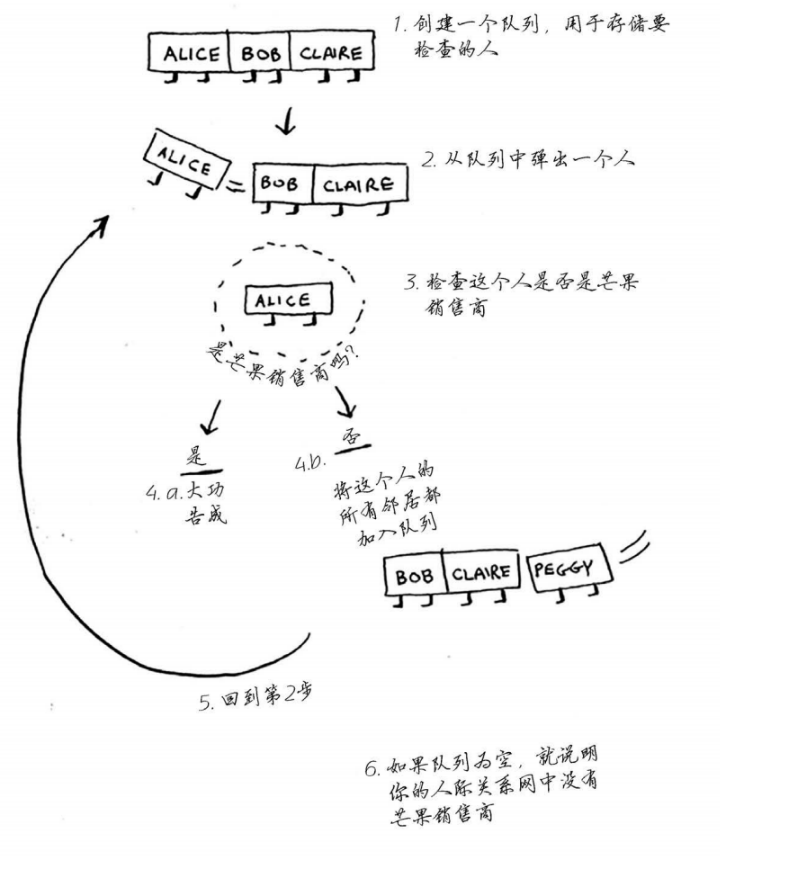 ALICE BOB CLAIRE
1. 创建一个队列，用于存储要
检查的人
ALICE
BOB CLAIRE
2. 从队列中弹出一个人
ALICE
3. 检查这个人是否是芒果
销售商
是芒果销售商吗?
是
4.a.大功
告成
否
4.b.
将这个人的
所有邻居都
加入队列
BOB CLAIRE PEGGY
5. 回到第2步
6. 如果队列为空，就说明
你的人际关系网中没有
芒果销售商